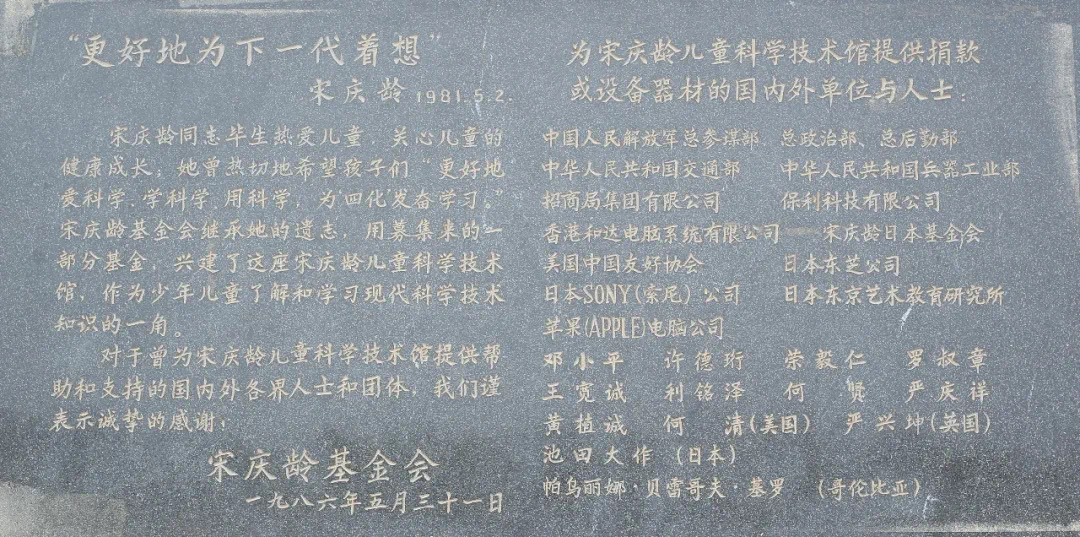 “更好地为下一代着想”
宋庆龄 1981.5.2.
宋庆龄同志毕生热爱儿童，关心儿童的
健康成长；她曾热切地希望孩子们“更好地
爱科学、学科学、用科学，为‘四化’发奋学习。”
宋庆龄基金会继承她的遗志，用募集来的一
部分基金，兴建了这座宋庆龄儿童科学技术
馆，作为少年儿童了解和学习现代科学技术
知识的一角。
对于曾为宋庆龄儿童科学技术馆提供帮
助和支持的国内外各界人士和团体，我们谨
表示诚挚的感谢！
宋庆龄基金会
一九八六年五月三十一日
为宋庆龄儿童科学技术馆提供捐款
或设备器材的国内外单位与人士：
中国人民解放军总参谋部、总政治部、总后勤部
中华人民共和国交通部 中华人民共和国兵器工业部
招商局集团有限公司 保利科技有限公司
香港和达电脑系统有限公司 宋庆龄日本基金会
美国中国友好协会 日本东芝公司
日本SONY(索尼)公司 日本东京艺术教育研究所
苹果(APPLE)电脑公司
邓小平 许德珩 荣毅仁 罗叔章
王宽诚 利铭泽 何贤 严庆详
黄植诚 何清(美国) 严兴坤(英国)
池田大作 (日本)
帕乌丽娜·贝雷哥夫·基罗 (哥伦比亚)